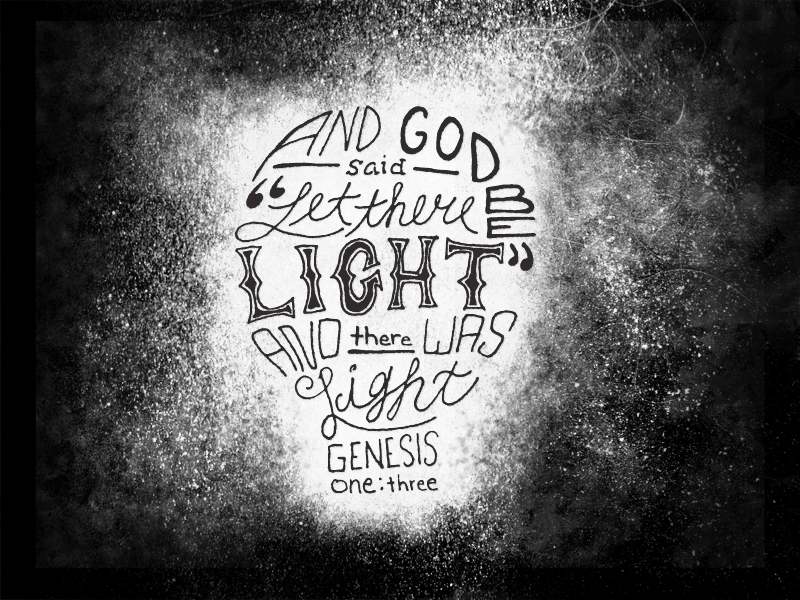 AND GOD
said
“Let there BE
LIGHT”
AND there WAS
Light
GENESIS
one:three